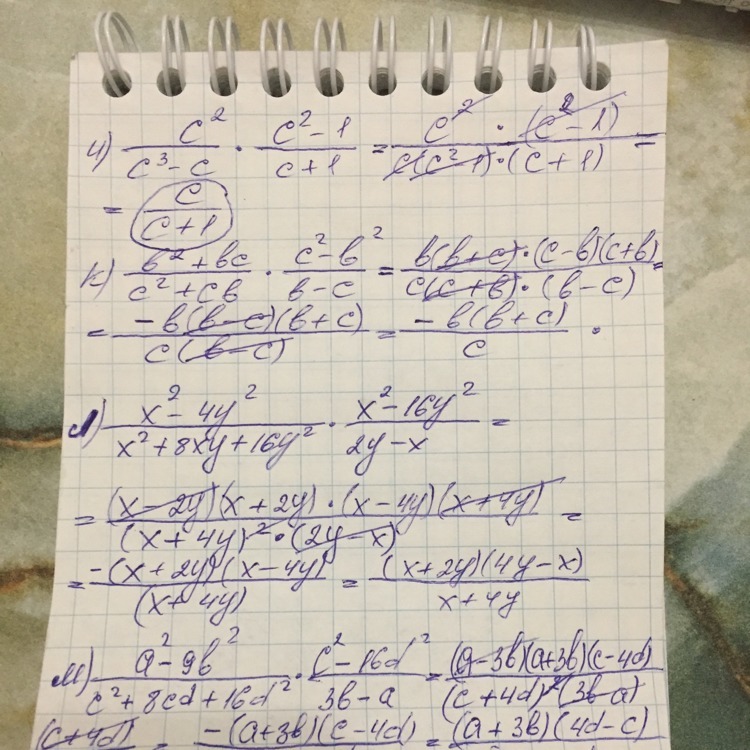 и) c²/(c³-c) · (c²-1)/(c+1) = c² · (c²-1)/(c(c²-1)·(c+1)) =
= c/(c+1)
к) (в²+вc)/(c²+cв) · (c²-в²)/(в-c) = в(в+c)·(c-в)(c+в)/(c(c+в)·(в-c)) =
= -в(в-c)(в+c)/(c(в-c)) = -в(в+c)/c .
л) (x²-4y²)/(x²+8xy+16y²) · (x²-16y²)/(2y-x) =
= (x-2y)(x+2y)·(x-4y)(x+4y)/((x+4y)²·(2y-x)) =
= -(x+2y)(x-4y)/(x+4y) = (x+2y)(4y-x)/(x+4y)
м) (a²-9в²)/(c²+8cd+16d²) · (c²-16d²)/(3в-a) = (a-3в)(a+3в)(c-4d)/((c+4d)²(3в-a))
(c+4d) = -(a+3в)(c-4d) = (a+3в)(4d-c)